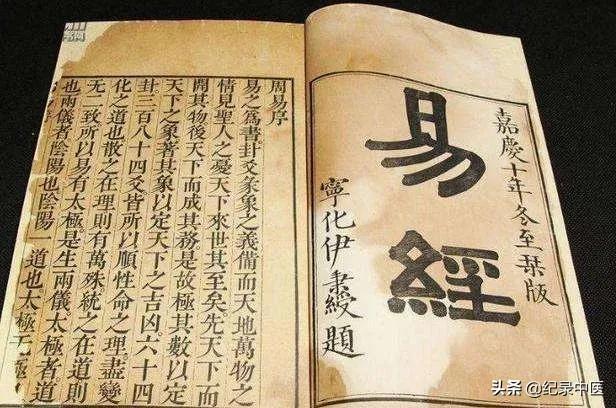 嘉慶十年冬至栞版
易經
寧化伊秉綬題
周易序
易之爲書卦爻彖象之義備而天地萬物之
情見聖人之憂天下來世其至矣先天下而
開其物後天下而成其務是故極其數以定
天下之象著其象以定天下之吉凶六十四
卦三百八十四爻皆所以順性命之理盡變
化之道也散之在理則有萬殊統之在道則
无二致所以易有太極是生兩儀太極者道
也兩儀者陰陽也陰陽一道也太極无極
头条 @纪录中医